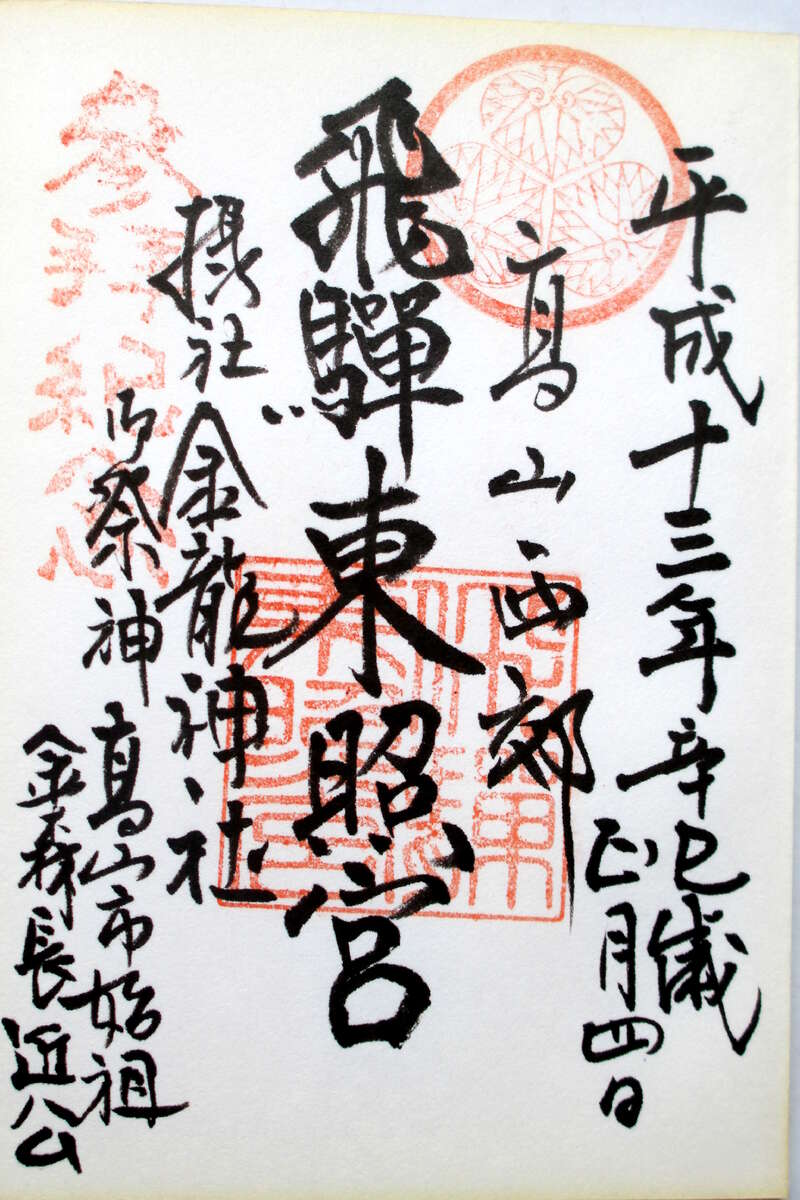 平成十三年辛巳歳
正月四日
高山西郊
飛騨東照宮
摂社金龍神社
御祭神
高山市始祖
金森長近公
参拝紀念